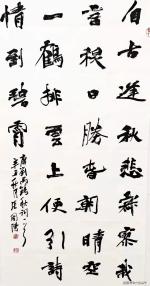 自古逢秋悲寂寥我
言秋日勝春朝晴空
一鶴排雲上便引詩
情到碧霄
唐劉禹錫秋詞一首